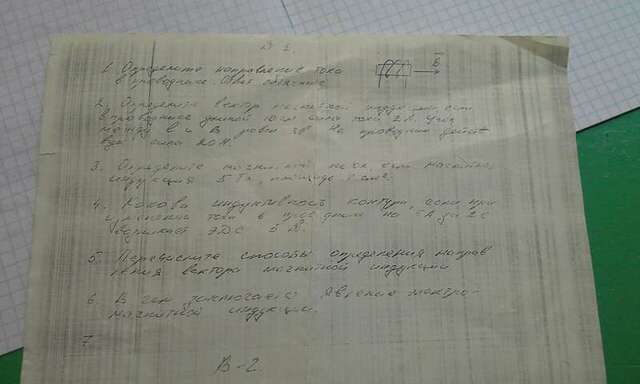 1. Определите направление тока
в проводнике. Ответ
B
2. Определите вектор магнитной индукции, если
в проводнике длиной 10 см сила тока 2А. Угол
между и B равен На проводник
сила 20 Н.
3. Определите магнитный если
индукция 5 Тл, площадь 2 см²
4. Какова индуктивность контура, если при
изменении тока в на 5А за 2с
возникает ЭДС 5 В.
5. Перечислите способы определения направ
ления вектора магнитной индукции
6. В чем заключается явление электро-
магнитной индукции.
В-2.